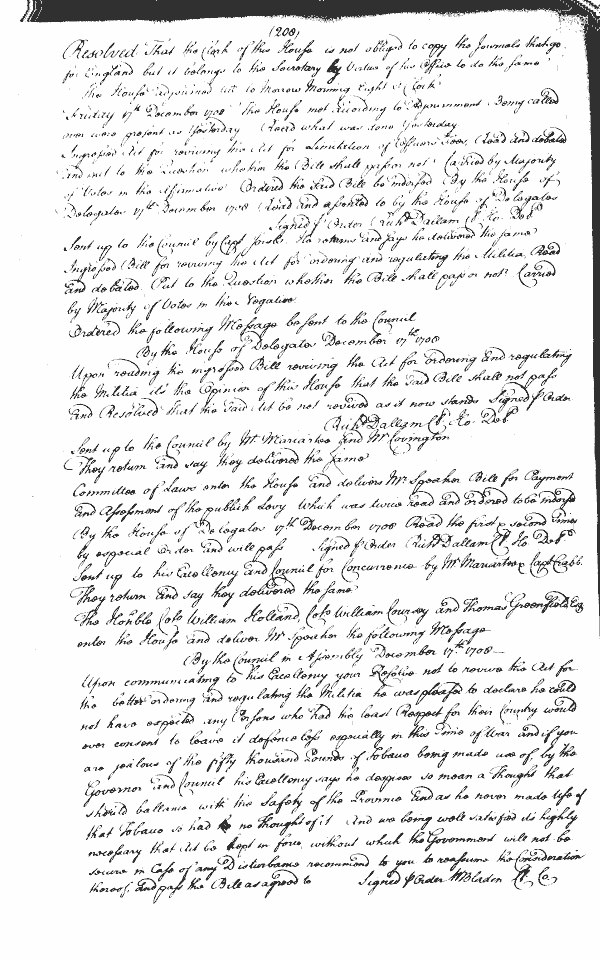 (208)
Resolved That the Clerk of this House is not obliged to copy the Journals that go
for England but it belongs to the Secretary by Vertue of his Office to do the same
The House adjourned till to Morrow Morning Eight a Clock
Friday 17th December 1708 The House met According to Adjournment Being called
over were present as Yesterday Read what was done Yesterday
Ingrossed Act for reviving the Act for Limitation of Officers Fees, Read and debated
and put to the Question whether the Bill shall pass or not Carried by Majority
of Votes in the Afirmative Ordered the said Bill be indorsed By the House of
Delegates 17th December 1708 Read and assented to by the House of Delegates
Signed p Order Richd Dallam Cl Ho. Del
Sent up to the Council by Capt He returns and says he delivered the same
Ingrossed Bill for reviving the Act for ordering and regulating the Militia Read
and debated Put to the Question whether the Bill shall pass or not Carried
by Majority of Votes in the Negative
Ordered the following Message be sent to the Council
By the House of Delegates December 17th 1708
Upon reading the ingrossed Bill reviving the Act for ordering and regulating
the Militia it's the Opinion of this House that the said Bill shall not pass
and Resolved that the said Act be not revived as it now stands Signed p Order
Richd Dallam Cl Ho. Del
Sent up to the Council by Mr Mariartee and Mr Covington
They return and say they delivered the same
Committee of Laws enter the House and delivers Mr Speaker Bill for Payment
and Assessment of the publick Levy which was twice Read and ordered to be indorsed
By the House of Delegates 17th December 1708 Read the first & second times
by especial Order and will pass Signed p Order Richd Dallam Cl Ho Del
Sent up to his Excellency and Council for Concurrence by Mr Mariartee & Capt Crabb.
They return and say they delivered the same
The Honble Colo William Holland, Colo William Coursey and Thomas Greenfield Esq
enter the House and deliver Mr Speaker the following Message
By the Council in Assembly December 17th 1708
Upon communicating to his Excellency your Resolve not to revive the Act for
the better ordering and regulating the Militia he was pleased to declare he could
not have expected any Persons who had the least Respect for their Country would
ever consent to leave it defenceless especially in this Time of War and if you
are jealous of the fifty thousand Pounds of Tobacco being made use of, by the
Governor and Council his Excellency says he despises so mean a Thought that
should ballance with the Safety of the Province and as he never made Use of
that Tobacco so had no Thought of it And we being well satisfied its highly
necessary that Act be kept in force, without which the Government will not be
secure in Case of any Disturbance recommend to you to reassume the Consideration
thereof, and pass the Bill as agreed to Signed p Order W Bladen Cl Co